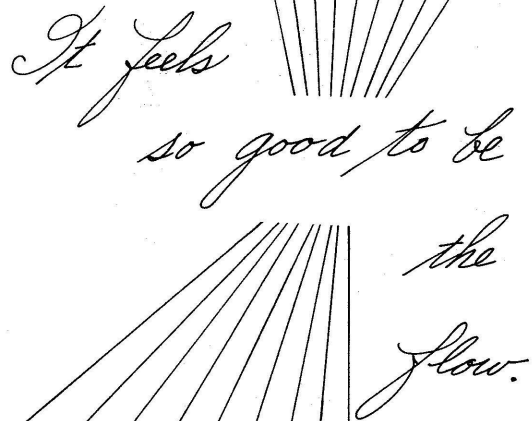 It feels
so good to be
the
flow.